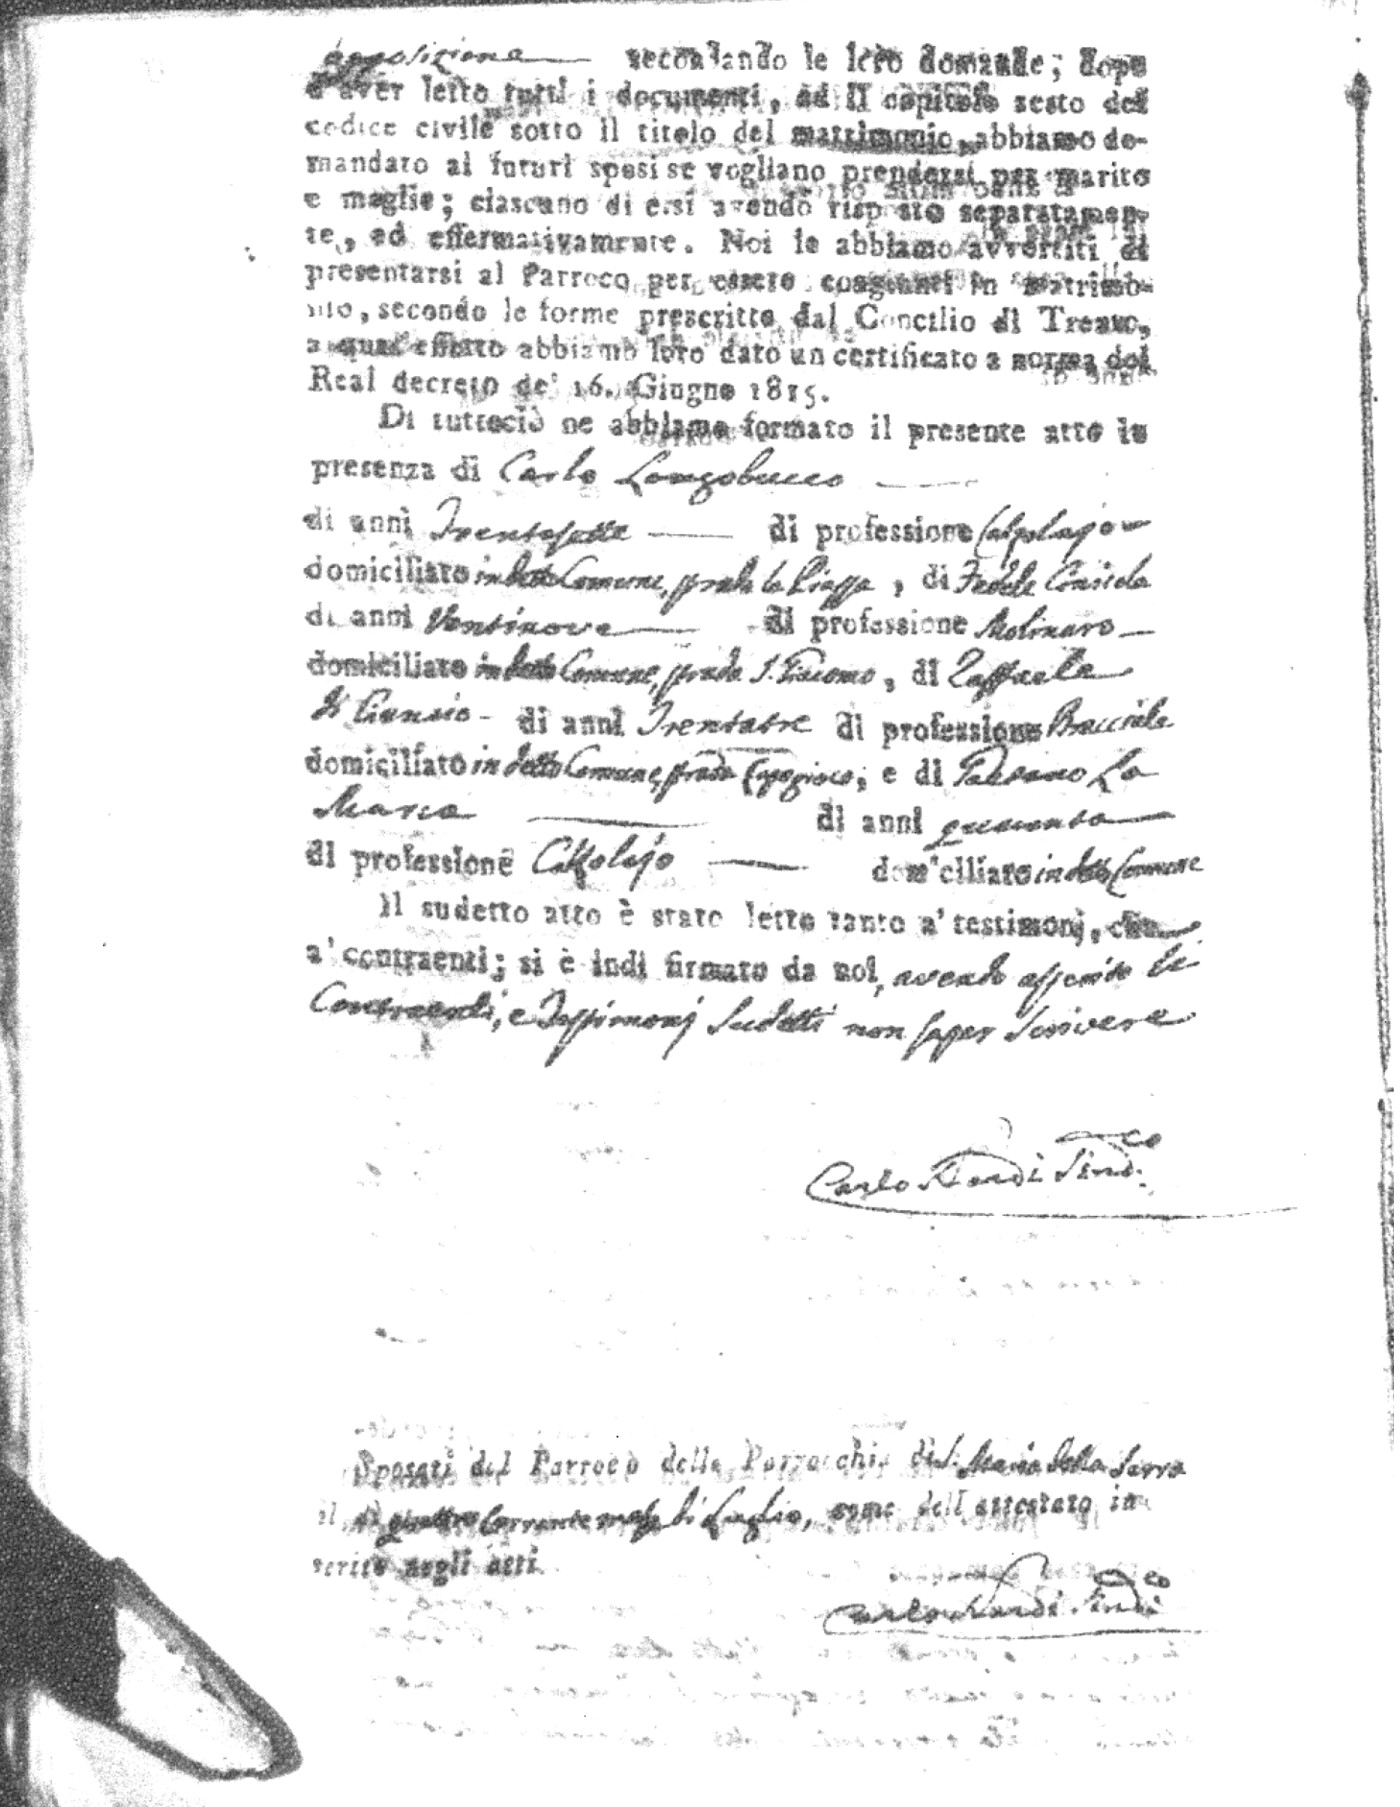 opposizione secondando le loro domande; dopo
d'aver letto tutti i documenti, ed il capitolo sesto del
codice civile sotto il titolo del matrimonio, abbiamo do-
mandato ai futuri sposi se vogliano prendersi per marito
e moglie; ciascuno di essi avendo risposto separatamen-
te, ed affermativamente. Noi le abbiamo avvertiti di
presentarsi al Parroco per essere congiunti in matrimo-
nio, secondo le forme prescritte dal Concilio di Trento,
a qual'effetto abbiamo loro dato un certificato a norma del
Real decreto de' 16. Giugno 1815.
Di tuttociò ne abbiamo formato il presente atto in
presenza di Carlo Longobucco
di anni Trentasette di professione Calzolajo
domiciliato in detto Comune, strada la Piazza, di Fedele
di anni Ventinove di professione Molinaro
domiciliato in detto Comune, strada S. Giacomo, di Raffaele
di di anni Trentatre di professione Bracciale
domiciliato in detto Comune, strada, e di Gaetano La
Marca di anni quaranta
di professione domiciliato in detto Comune
Il sudetto atto è stato letto tanto a' testimonj, che
a' contraenti; si è indi firmato da noi, avendo asserito li
Contraenti, e Testimonj sudetti non saper scrivere
Carlo Nardi Sind.co
Sposati dal Parroco della Parrocchia di S. Maria della Serra
il dì quattro corrente mese di Luglio, come dell'attestato in
serito negli atti.
Carlo Nardi Sind.co